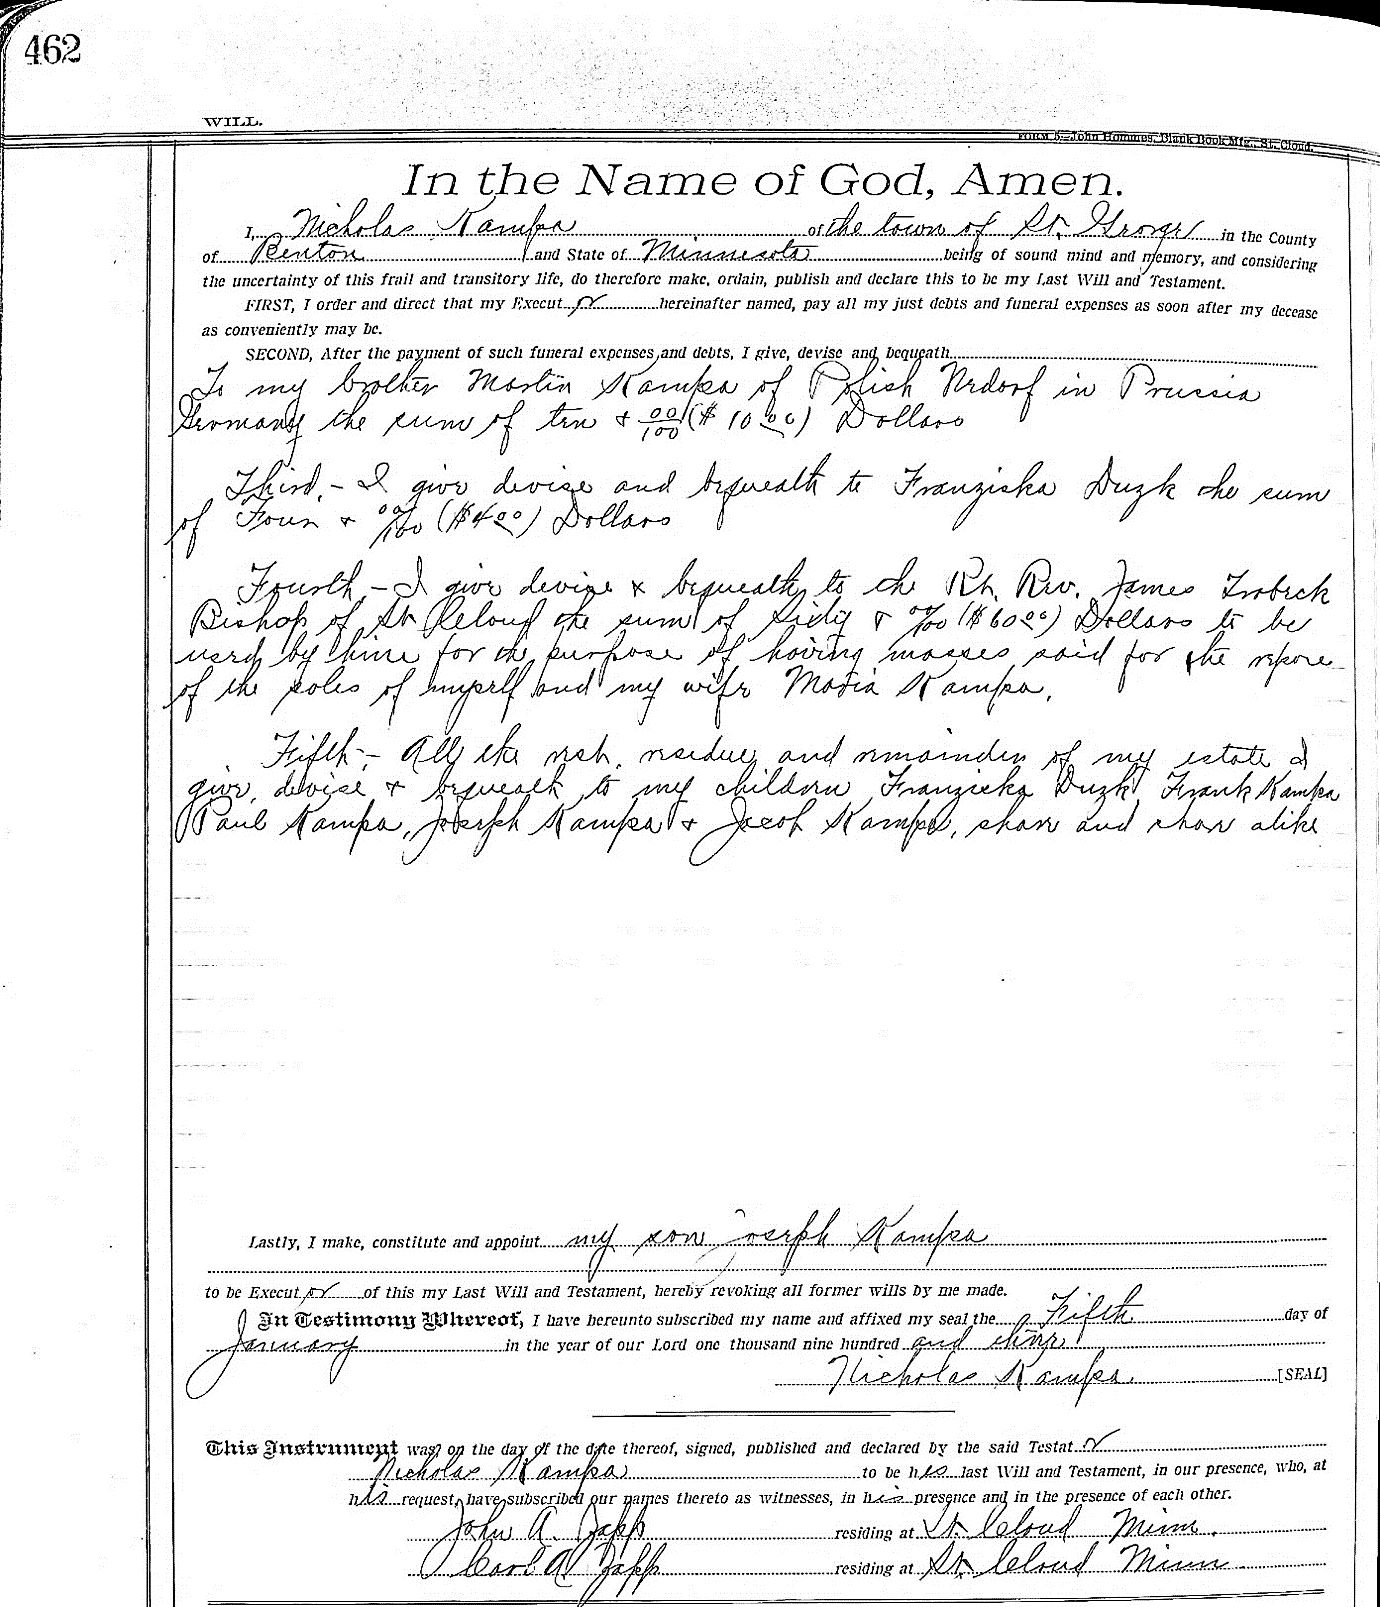 462
WILL.
FORM 5—John Hommes, Blank Book Mfg., St. Cloud.
In the Name of God, Amen.
I, Nicholas Kampa of the town of St. George in the County
of Benton and State of Minnesota being of sound mind and memory, and considering
the uncertainty of this frail and transitory life, do therefore make, ordain, publish and declare this to be my Last Will and Testament.
FIRST, I order and direct that my Execut or hereinafter named, pay all my just debts and funeral expenses as soon after my decease
as conveniently may be.
SECOND, After the payment of such funeral expenses and debts, I give, devise and bequeath
To my brother Martin Kampa of Polish Nedorf in Prussia
Germany the sum of ten & 00/100 ($10.00) Dollars
Third,- I give devise and bequeath to Franziska Duzk the sum
of Four & 00/100 ($4.00) Dollars
Fourth,- I give devise & bequeath to the Rt. Rev. James Trobeck
Bishop of St. Cloud the sum of Sixty & 00/100 ($60.00) Dollars to be
used by him for the purpose of having masses said for the repose
of the soles of myself and my wife Maria Kampa.
Fifth,- All the rest, residue and remainder of my estate I
give, devise & bequeath to my children Franziska Duzk, Frank Kampa
Paul Kampa, Joseph Kampa & Jacob Kampa, share and share alike
Lastly, I make, constitute and appoint my son Joseph Kampa
to be Execut or of this my Last Will and Testament, hereby revoking all former wills by me made.
In Testimony Whereof, I have hereunto subscribed my name and affixed my seal the Fifth day of
January in the year of our Lord one thousand nine hundred and
Nicholas Kampa. [SEAL]
This Instrument was, on the day of the date thereof, signed, published and declared by the said Testat or
Nicholas Kampa to be his last Will and Testament, in our presence, who, at
his request, have subscribed our names thereto as witnesses, in his presence and in the presence of each other.
John A. Zapp residing at St. Cloud Minn.
Carl A. Zapp residing at St. Cloud Minn